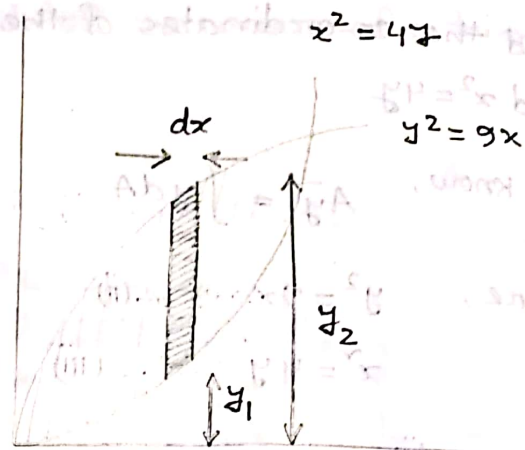 x² = 4y
dx
y² = 9x
y₂
y₁